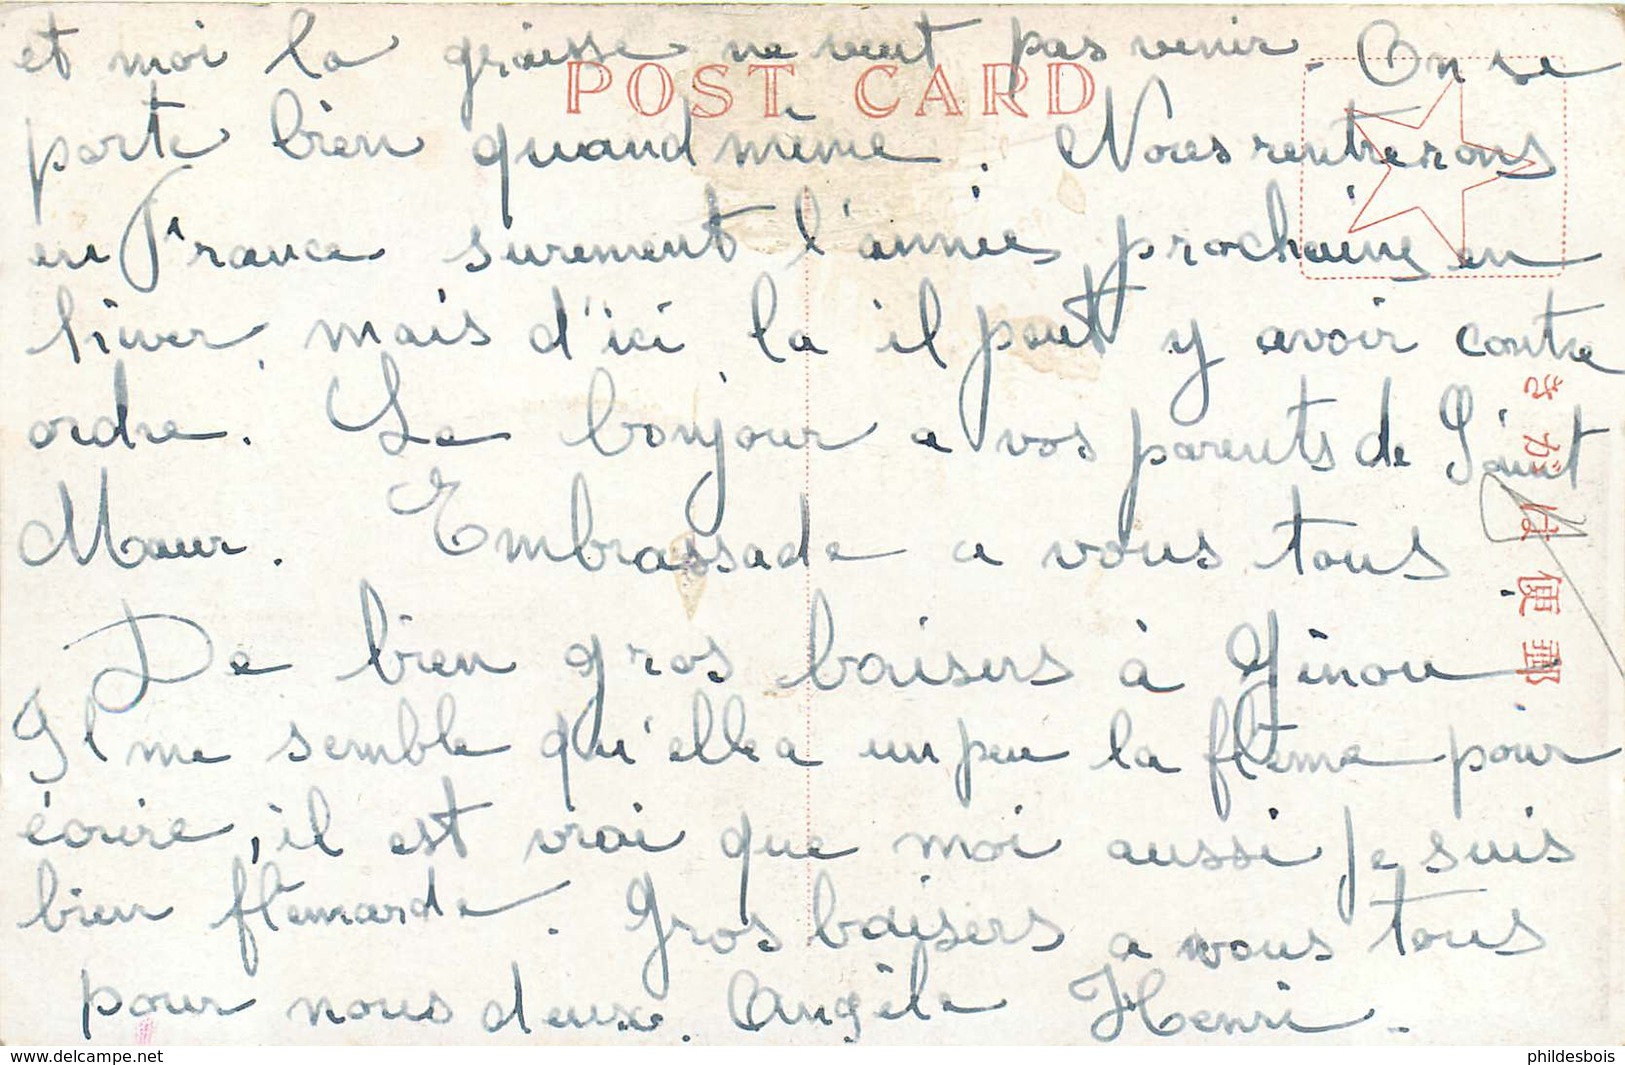 et moi la graisse ne veut pas venir. On se
POST CARD
porte bien quand même. Nous rentrerons
en France surement l'année prochaine en
hiver, mais d'ici la il peut y avoir contre
ordre. Le bonjour a vos parents de Saint
Maur. Embrassade a vous tous.
De bien gros baisers à Ginou
Il me semble qu'elle a un peu la fleme pour
écrire, il est vrai que moi aussi je suis
bien flemarde. Gros baisers a vous tous
pour nous deux. Angèle Henri.
郵便はがき
www.delcampe.net
phildesbois